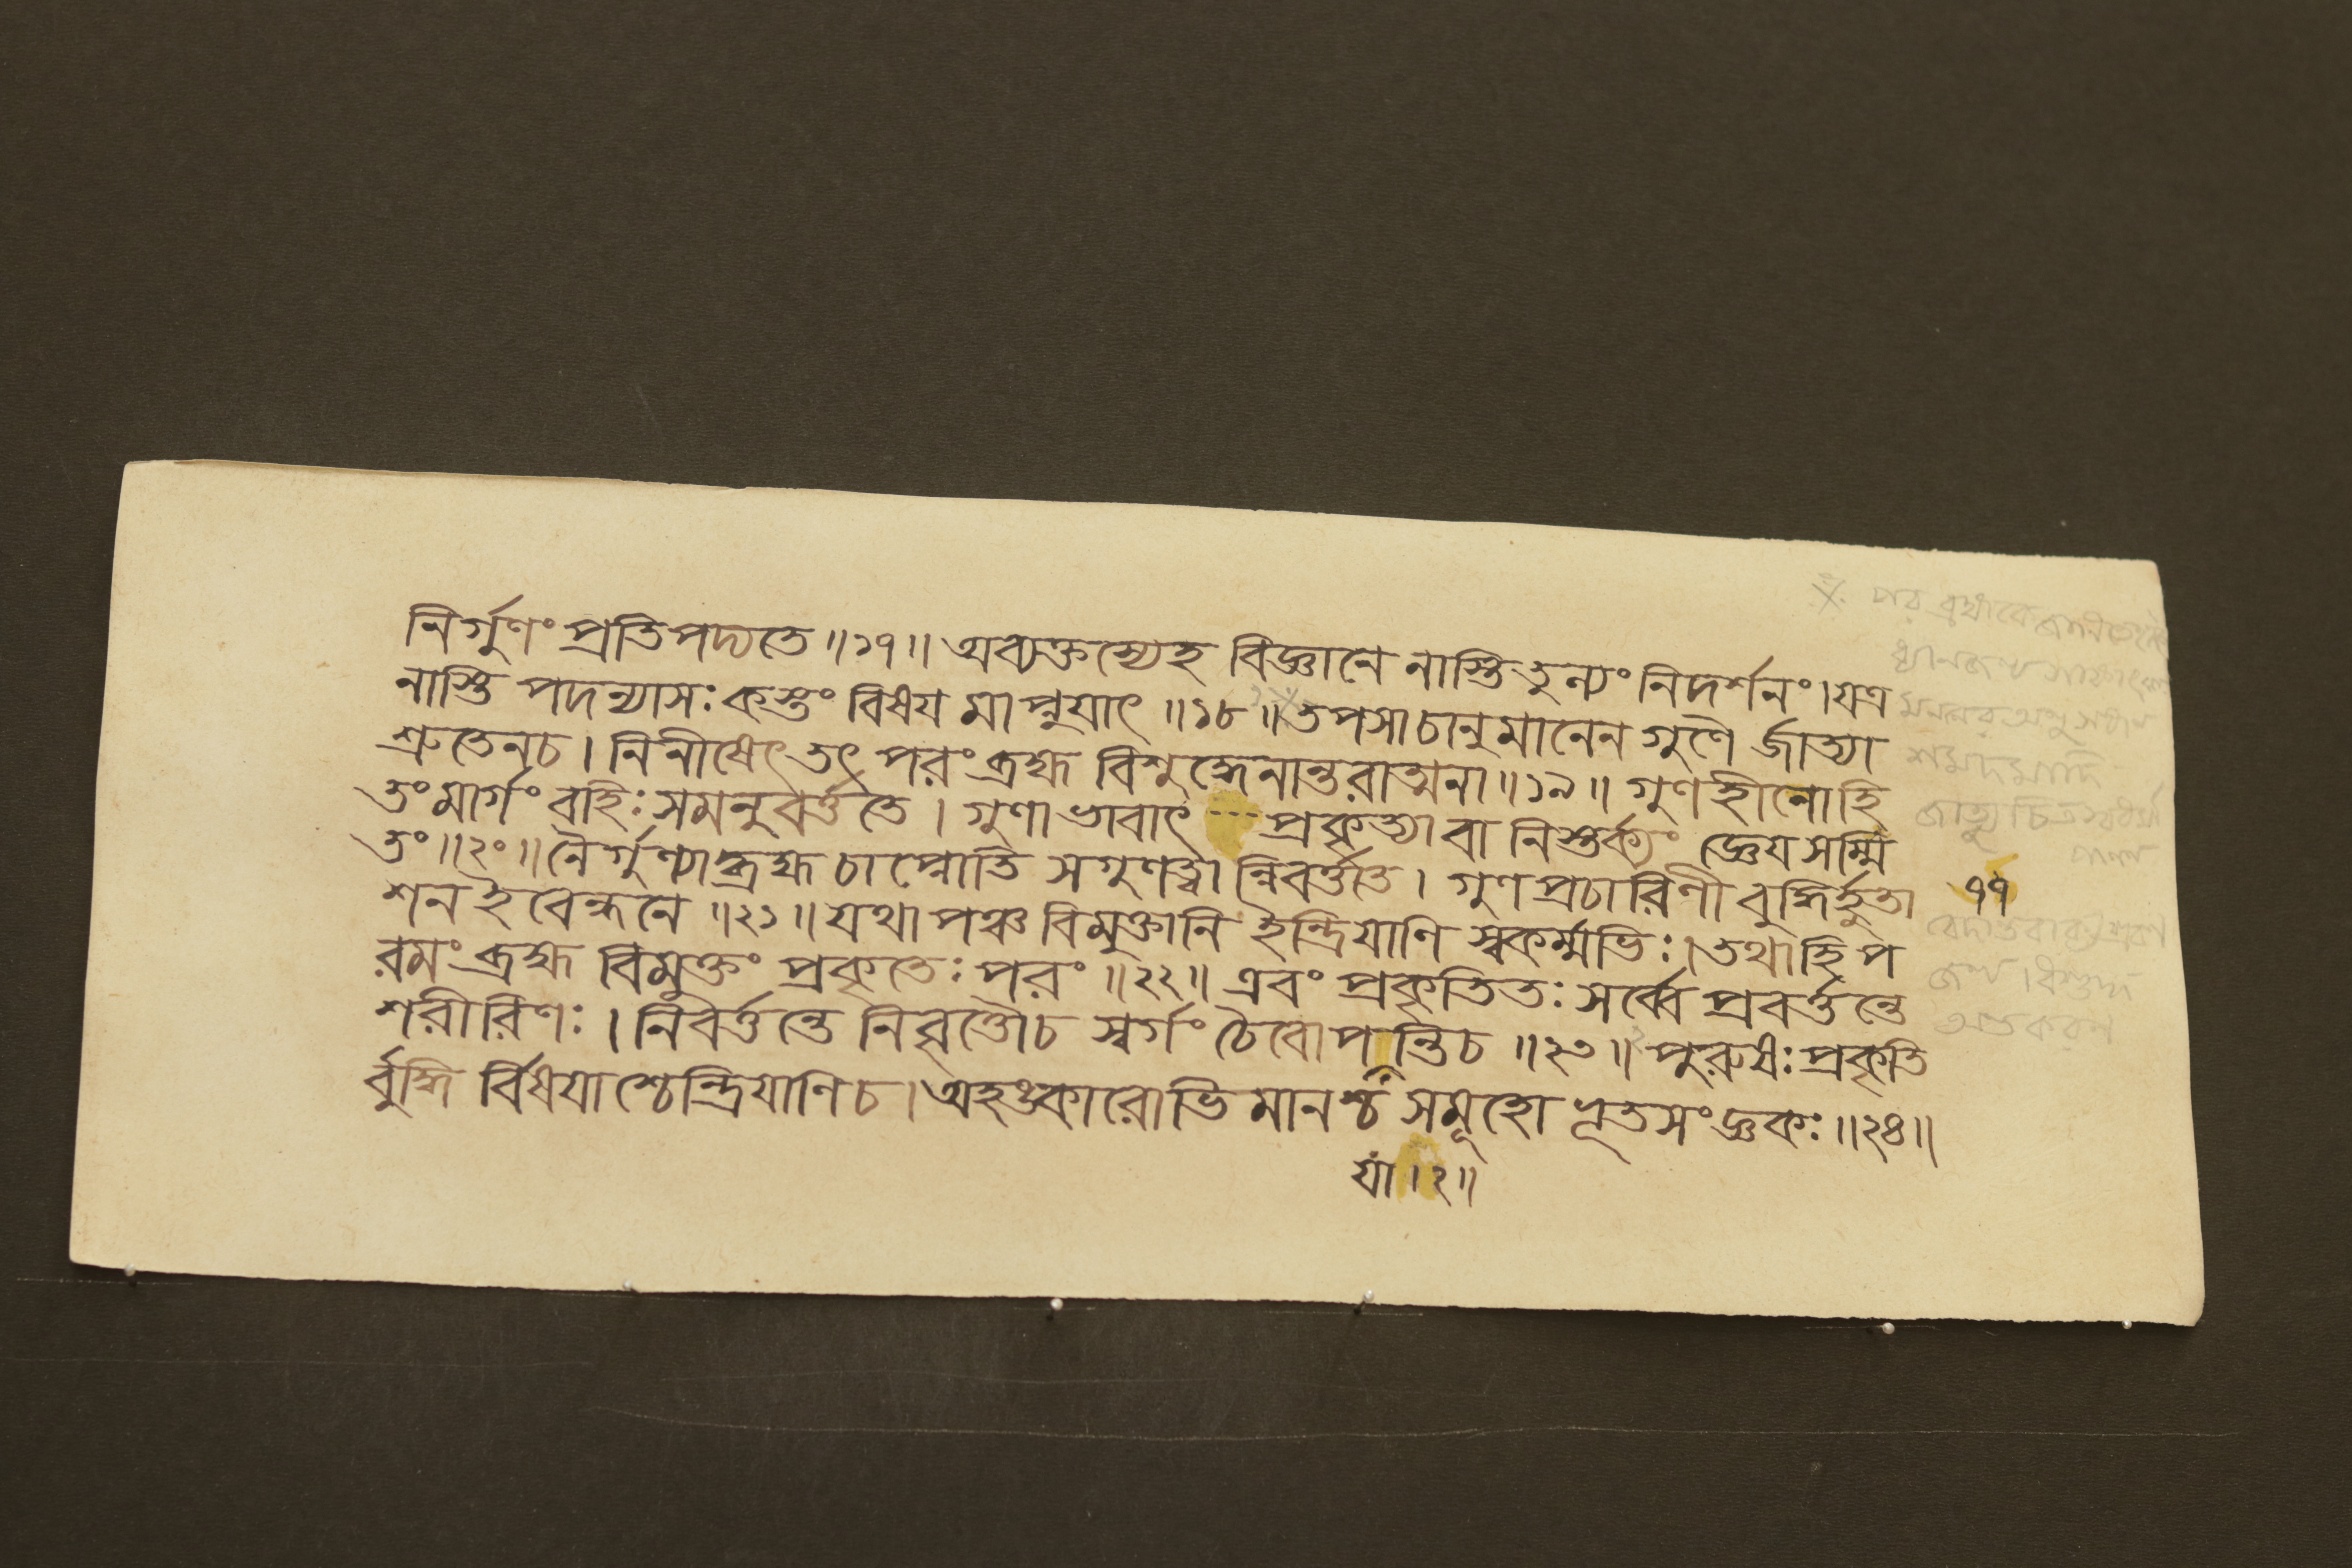 নির্গুণং প্রতিপদ্যতে ॥১৭॥ অব্যক্তস্যেহ বিজ্ঞানে নাস্তি তুল্যং নিদর্শনং । যত্র
নাস্তি পদন্যাসঃ কস্তং বিষয মাপ্নুযাৎ ॥১৮॥ তপসাচানুমানেন গুণৈ র্জাত্যা
শ্রুতেনচ । নিনীষেৎ তৎ পরংব্রহ্ম বিশুদ্ধেনান্তরাত্মনা ॥১৯॥ গুণহীনোহি
তংমার্গং বহিঃ সমনুবর্ত্ততে । গুণাভাবাৎ --- প্রকৃত্যাবা নিস্তর্ক্যং জ্ঞেযসম্মি
তং ॥২০॥ নৈর্গুণ্যাদ্ব্রহ্ম চাপ্নোতি সগুণত্বান্নিবর্ত্ততে । গুণপ্রচারিণী বুদ্ধির্হুতা
শনইবেন্ধনে ॥২১॥ যথা পঞ্চ বিমুক্তানি ইন্দ্রিযাণি স্বকর্ম্মভিঃ । তথাহি প
রমংব্রহ্ম বিমুক্তং প্রকৃতেঃ পরং ॥২২॥ এবং প্রকৃতিতঃ সর্ব্বে প্রবর্ত্তন্তে
শরীরিণঃ । নিবর্ত্তন্তে নিবৃত্তৌচ স্বর্গং চৈবোপ ন্তিচ ॥২৩॥ পুরুষঃ প্রকৃতি
র্বুদ্ধি র্বিষযাশ্চেন্দ্রিযাণিচ । অহঙ্কারোভিমানশ্চ সমূহো ভূতসংজ্ঞকঃ ॥২৪॥
যা । ২॥
৭৭